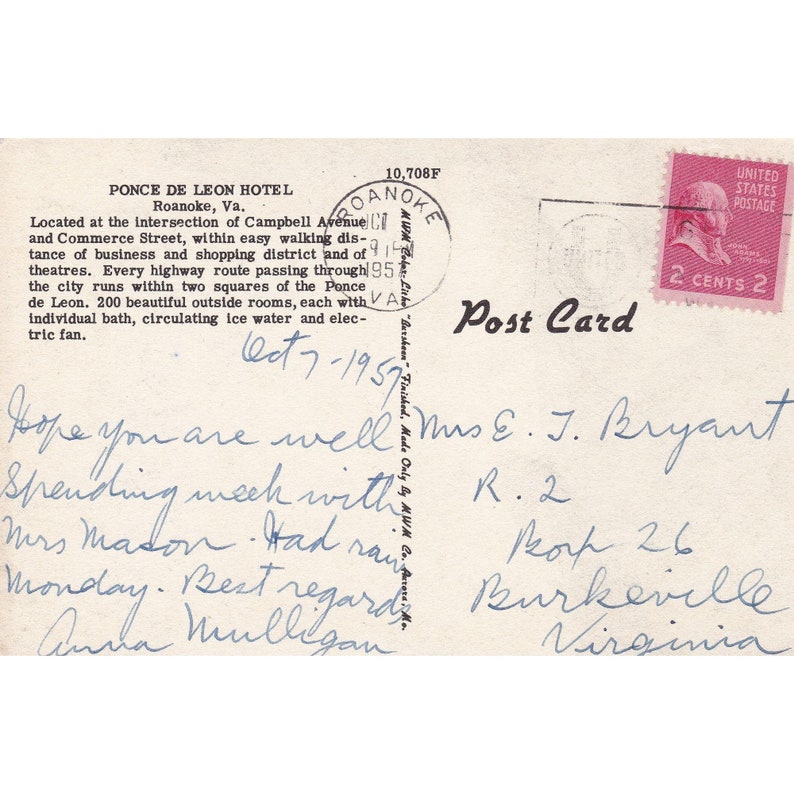 10,708F
PONCE DE LEON HOTEL
Roanoke, Va.
Located at the intersection of Campbell Avenue
and Commerce Street, within easy walking dis-
tance of business and shopping district and of
theatres. Every highway route passing through
the city runs within two squares of the Ponce
de Leon. 200 beautiful outside rooms, each with
individual bath, circulating ice water and elec-
tric fan.
ROANOKE
VA
UNITED
STATES
POSTAGE
JOHN
ADAMS
2 CENTS 2
Post Card
MWM Color-Litho "Larsheen" Finished, Made Only By MWM Co. Aurora, Mo.
Oct 7-1957
Hope you are well
Spending week with
Mrs Mason. Had rain
Monday. Best regards
Anna Mulligan
Mrs E. T. Bryant
R. 2
Box 26
Burkeville
Virginia